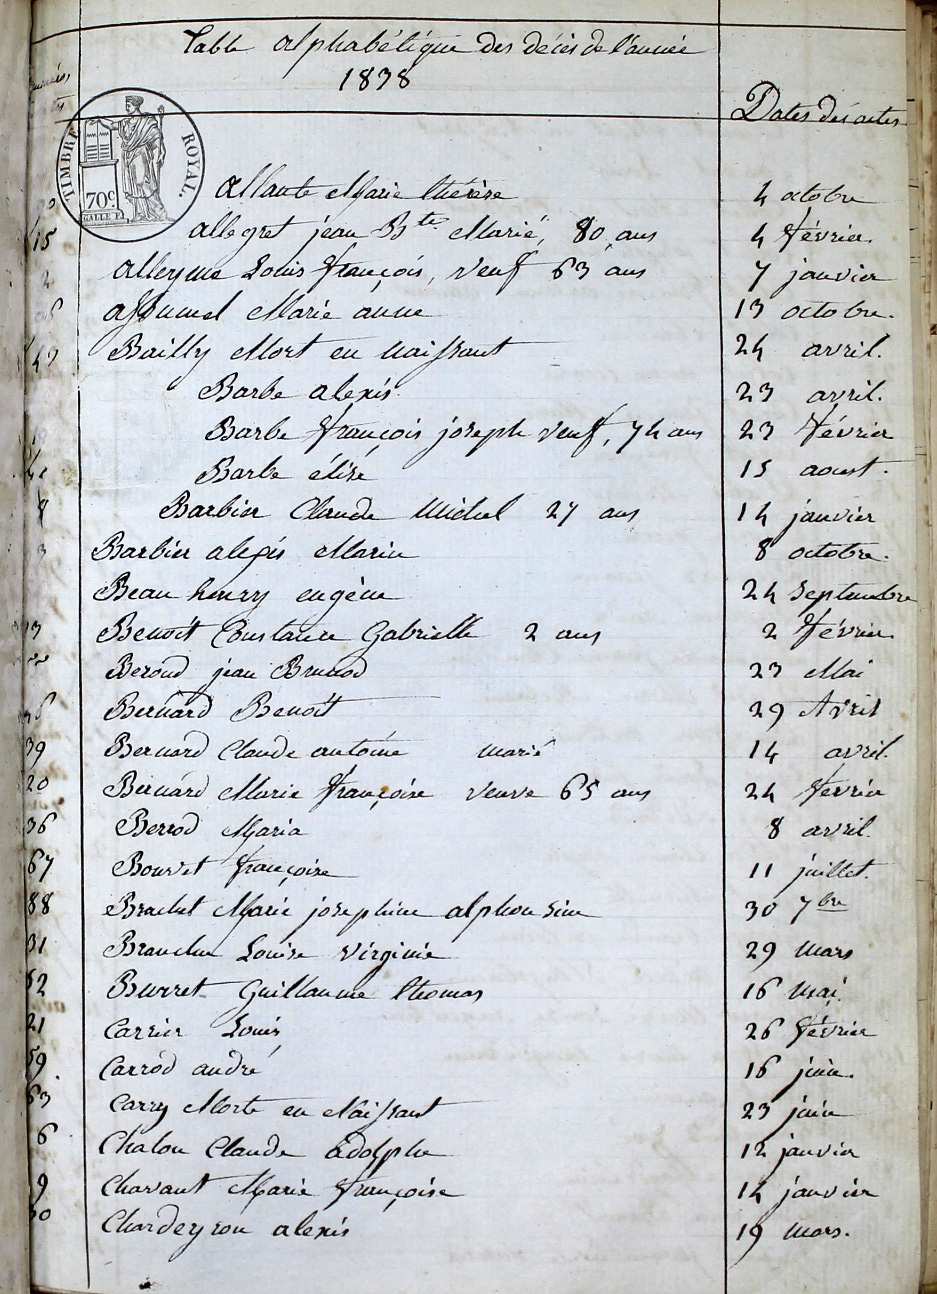 Table alphabétique des décès de l'année
1838
Dates des actes
TIMBRE ROYAL.
70c
Allante Marie thérèse 4 octobre
15 allegret jean Bte Marié, 80 ans 4 février.
2 alleyme Louis françois, veuf 63 ans 7 janvier
Marie anne 13 octobre.
Bailly Mort en naissant 24 avril.
Barbe alexis 23 avril.
Barbe françois joseph veuf, 74 ans 23 février
Barbe élise 15 aoust.
8 Barbier Claude Michel 27 ans 14 janvier
3 Barbier alexis Marie 8 octobre.
Beau henry eugène 24 Septembre
13 Benoit Constance Gabrielle 2 ans 2 février
Beroud jean Brunod 23 Mai
Bernard Benoit 29 Avril
39 Bernard Claude antoine marié 14 avril.
20 Bernard Marie françoise veuve 65 ans 24 février
36 Berrod Maria 8 avril.
67 Bouvet françoise 11 juillet.
88 Brachet Marie josephine alphonsine 30 7bre
31 Branche Louise virginie 29 mars
52 Burret Guillaume thomas 16 mai
21 Carrier Louis 26 février
59 Carrod andré 16 juin.
63 Carry Morte en Naissant 23 juin
6 Chalon Claude adolphe 12 janvier
9 Chavant Marie françoise 14 janvier
30 Chardeyron alexis 19 mars.